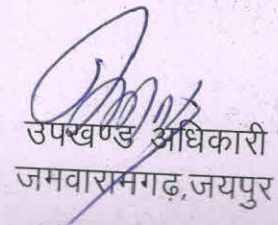 उपखण्ड अधिकारी
जमवारामगढ़,जयपुर